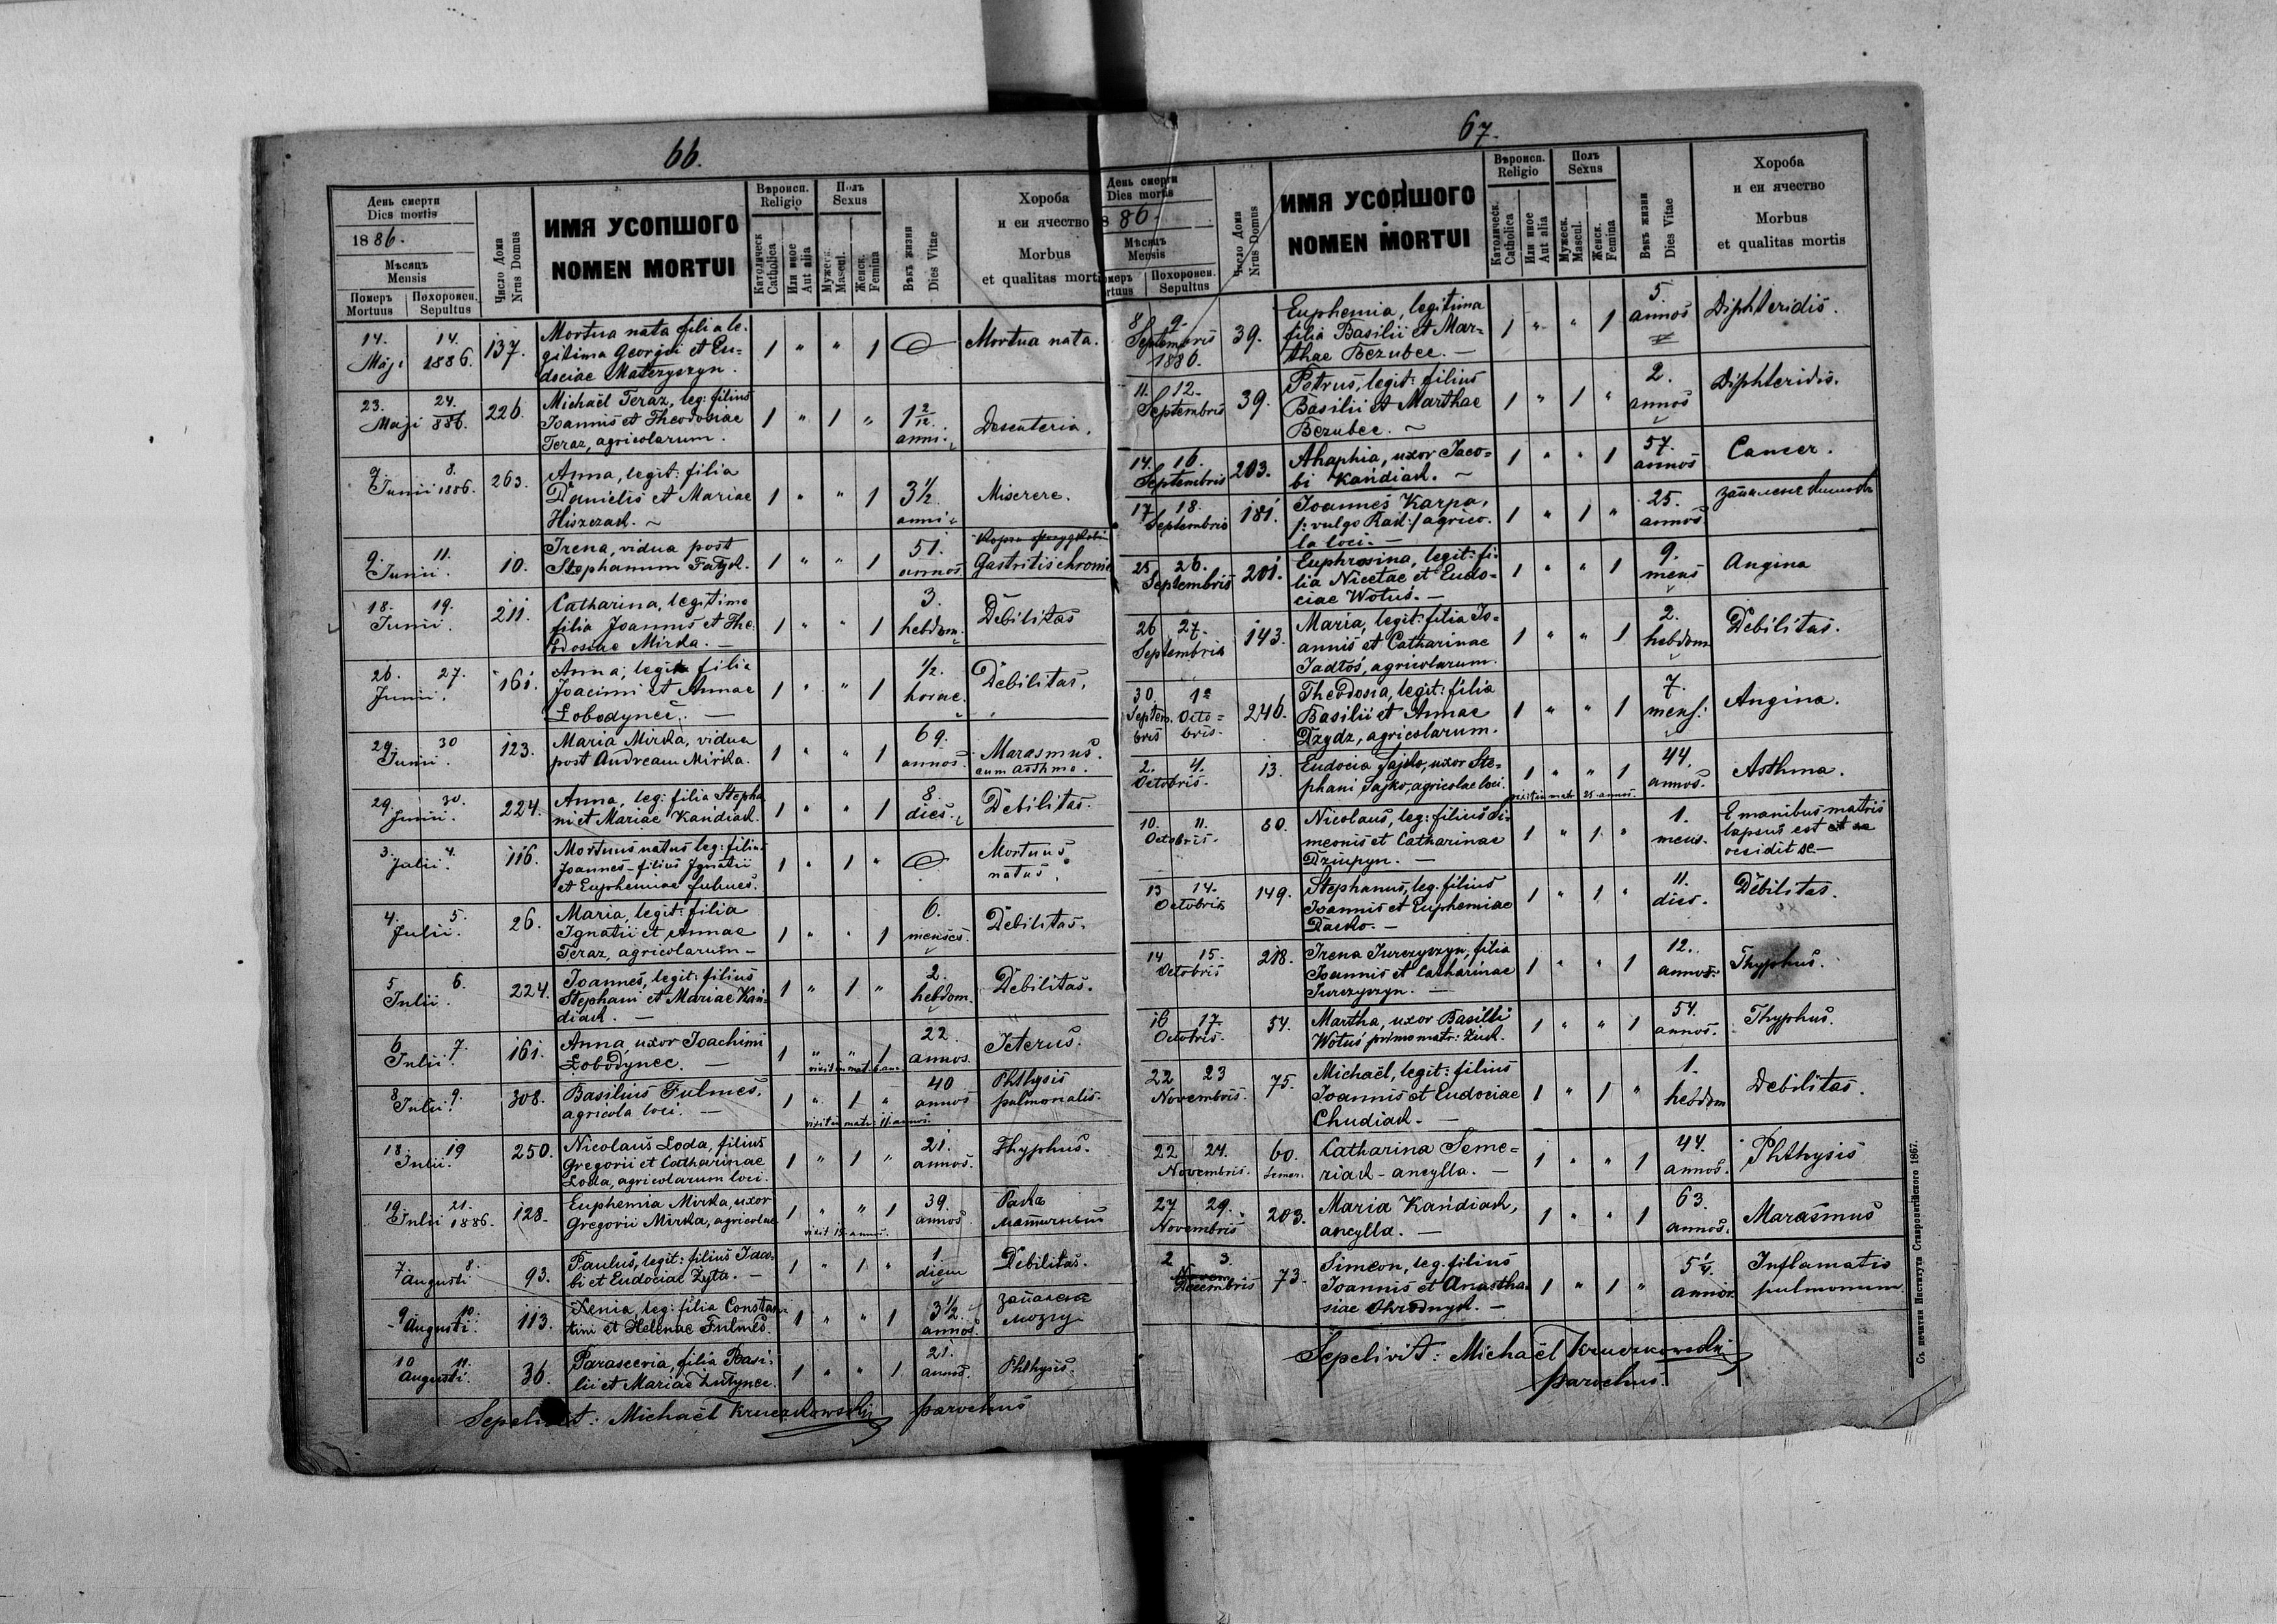 66.
День смерти
Dies mortis
1886.
Мѣсяцъ
Mensis
Померъ Mortuus
Похоронен. Sepultus
Число Дома
Nrus Domus
ИМЯ УСОПШОГО
NOMEN MORTUI
Вѣроисп.
Religio
Католическ
Catholica
Или иное
Aut alia
Полъ
Sexus
Мужеск.
Mascul.
Женск.
Femina
Вѣкъ жизни
Dies Vitae
Хороба
и еи ячество
Morbus
et qualitas morti
14. 14. Maji 1886. 137. Mortua nata filia le-
gitima Georgii et Eu-
dociae Matczyszyn. 1 " " 1 Mortua nata.
23. 24. Maji 886. 226. Michaël Teraz, leg: filius
Joannis et Theodosiae
Teraz, agricolarum. 1 " 1 " 1 2/12 anni. Desenteria.
7. 8. Junii 1886. 263. Anna, legit: filia
Danielis et Mariae
Hiszczak. ~ 1 " " 1 3 1/2 anni Miserere.
9. 11. Junii. 10. Irena, vidua post
Stephanum Fatyk. 1 " " 1 51. annos Gastritis chronic
18. 19. Junii. 211. Catharina, legitima
filia Joannis et The-
odosiae Mirka. — 1 " " 1 3. hebdom. Debilitas
26. 27. Junii. 161. Anna, legit filia
Joacimi et Annae
Łobodynec. — 1 " " 1 1/2. horae. Debilitas.
29. 30 Junii. 123. Maria Mirka, vidua
post Andream Mirka. 1 " " 1 69. annos. Marasmus.
cum asthma.
29. 30. Junii. 224. Anna, leg: filia Stepha
ni et Mariae Kandiak. 1 " " 1 8. dies. Debilitas.
3. 4. Julii. 116. Mortuus natus leg: filius
Joannes - filius Ignatii
et Euphemiae Fulmes. 1 " 1 " Mortuus
natus.
4. 5. Julii. 26. Maria, legit: filia
Ignatii et Annae
Teraz, agricolarum - 1 " " 1 6. menses. Debilitas.
5 6. Julii. 224. Joannes, legit: filius
Stephani et Mariae Kan-
diak. — 1 " 1 " 2. hebdom. Debilitas.
6 7. Julii. 161. Anna uxor Joachimi
Łobodynec. — 1 " " 1 22. annos. Icterus.
vixit in mat. 6 ann.
8 9. Julii. 308. Basilius Fulmes,
agricola loci. — 1 " 1 " 40 annos Phthysis
pulmonalis.
vixit in matr. 11. annos.
18. 19 Julii. 250. Nicolaus Loda, filius
Gregorii et Catharinae
Loda, agricolarum loci. 1 " 1 " 21. annos. Thyphus.
19. 21. Julii 1886. 128. Euphemia Mirka, uxor
Gregorii Mirka, agricolae 1 " " 1 39. annos.
vixit 19. annos.
7 8. Augusti 93. Paulus, legit: filius Jaco-
bi et Eudociae Zyta. — 1 " 1 " 1 diem Debilitas.
9 10. Augusti. 113. Xenia, leg: filia Constan-
tini et Helenae Fulmes. 1 " " 1 3 1/2. annos. запалене
мозгу
10 11. Augusti. 36. Parascevia, filia Basi-
lii et Mariae Lutynec. 1 " " 1 21. annos. Phthysis.
Sepelivit: Michaël Kruczkowskij parochus
67.
День смерти
Dies mortis
886.
Мѣсяцъ
Mensis
Похоронен.
Sepultus
Число Дома
Nrus Domus
ИМЯ УСОПШОГО
NOMEN MORTUI
Вѣроисп.
Religio
Католическ.
Catholica
Или иное
Aut alia
Полъ
Sexus
Мужеск.
Mascul.
Женск.
Femina
Вѣкъ жизни
Dies Vitae
Хороба
и еи ячество
Morbus
et qualitas mortis
8 9. Septembris 1886. 39. Euphemia, legitima
filia Basilii et Mar-
thae Bezubec. — 1 " " 1 5. annos Diphteridis.
11. 12. Septembris 39. Petrus, legit: filius
Basilii et Marthae
Bezubec. ~ 1 " 1 " 2. annos Diphteridis.
14. 16. Septembris 203. Ahaphia, uxor Jaco-
bi Kandiak. ~ 1 " " 1 57. annos Cancer.
17 18. Septembris 181. Joannes Karpa,
/: vulgo Rak :/ agrico-
la loci. — 1 " 1 " 25. annos запалене
25 26. Septembris 201. Euphrosina, legit: fi-
lia Nicetae et Eudo-
ciae Wotus. — 1 " " 1 9. mens Angina
26 27. Septembris 143. Maria, legit: filia Jo-
annis et Catharinae
Jadłoś, agricolarum. 1 " " 1 2. hebdom Debilitas.
30 Septembris 1a Octobris. 246. Theodosia, legit: filia
Basilii et Annae
Dzydz, agricolarum. 1 " " 1 7. mens. Angina.
2. 4. Octobris. 13. Eudocia Fajko, uxor Ste-
phani Fajko, agricolae loci. 1 " " 1 44. annos. Asthma.
vixit in matr. 25 annos.
10. 11. Octobris. 80. Nicolaus, leg: filius Si-
meonis et Catharinae
Dziupyn. — 1 " 1 " 1. mens. E manibus matris
lapsus est et
occidit se—
13 14. Octobris 149. Stephanus, leg. filius
Joannis et Euphemiae
Dacko. — 1 " 1 " 11. dies. Debilitas.
14 15. Octobris 218. Irena Jurczyszyn, filia
Joannis et Catharinae
Jurczyszyn. — 1 " " 1 12. annos. Thyphus.
16 17. Octobris. 54. Martha, uxor Basilii
Wotus primo matr: Żuk. 1 " " 1 54. annos. Thyphus.
22 23 Novembris. 75. Michaël, legit: filius
Joannis et Eudociae
Chudiak. — 1 " 1 " 1. hebdom Debilitas.
22 24. Novembris. 60. Catharina Seme-
riak - ancylla. — 1 " " 1 44. annos. Phthysis
27 29. Novembris 203. Maria Kandiak,
ancylla. — 1 " " 1 63. annos. Marasmus
2 3. Decembris 73. Simeon, leg. filius
Joannis et Anastha-
siae Ohrodnyk. — 1 " 1 " 5 1/4. annor. Inflamatio
pulmonum
Sepelivit: Michaël Kruczkowskij
parochus.
Съ печатни Института Ставропигійского 1867.